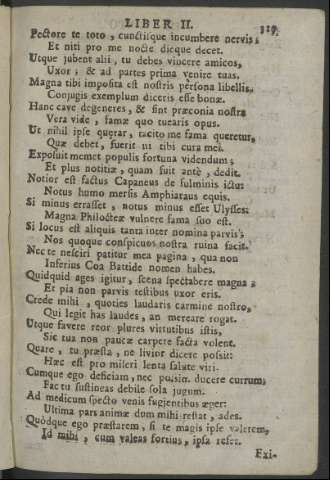 LIBER II. 329
Pectore te toto, cunctisque incumbere nervis;
Et niti pro me nocte dieque decet.
Utque jubent alii, tu debes vincere amicos,
Uxor; & ad partes prima venire tuas.
Magna tibi imposita est nostris persona libellis,
Conjugis exemplum diceris esse bonæ.
Hanc cave degeneres, & sint præconia nostra
Vera vide, famæ quo tuearis opus.
Ut nihil ipse querar, tacito me fama queretur,
Quæ debet, fuerit ni tibi cura mei.
Exposuit memet populis fortuna videndum;
Et plus notitiæ, quam fuit antè, dedit.
Notior est factus Capaneus de fulminis ictu:
Notus humo mersis Amphiaraus equis.
Si minus errasset, notus minus esset Ulysses:
Magna Philoctetæ vulnere fama suo est.
Si locus est aliquis tanta inter nomina parvis,
Nos quoque conspicuos nostra ruina facit.
Nec te nesciri patitur mea pagina, qua non
Inferius Coa Battide nomen habes.
Quidquid ages igitur, scena spectabere magna;
Et pia non parvis testibus uxor eris.
Crede mihi, quoties laudaris carmine nostro,
Qui legit has laudes, an mereare rogat.
Utque favere reor plures virtutibus istis,
Sic tua non paucæ carpere facta volent.
Quare, tu præsta, ne livior dicere possit:
Hæc est pro miseri lenta salute viri.
Cumque ego deficiam, nec possim ducere currum;
Fac tu sustineas debile sola jugum.
Ad medicum specto venis fugientibus æger:
Ultima pars animæ dum mihi restat, ades.
Quòdque ego præstarem, si te magis ipse valerem,
Id mihi, cum valeas fortius, ipsa refer.
Exi-